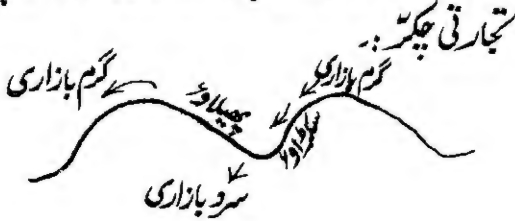 تجارتی چکر :-
گرم بازاری
گرم بازاری
پھیلاؤ
سکڑاؤ
سرد بازاری